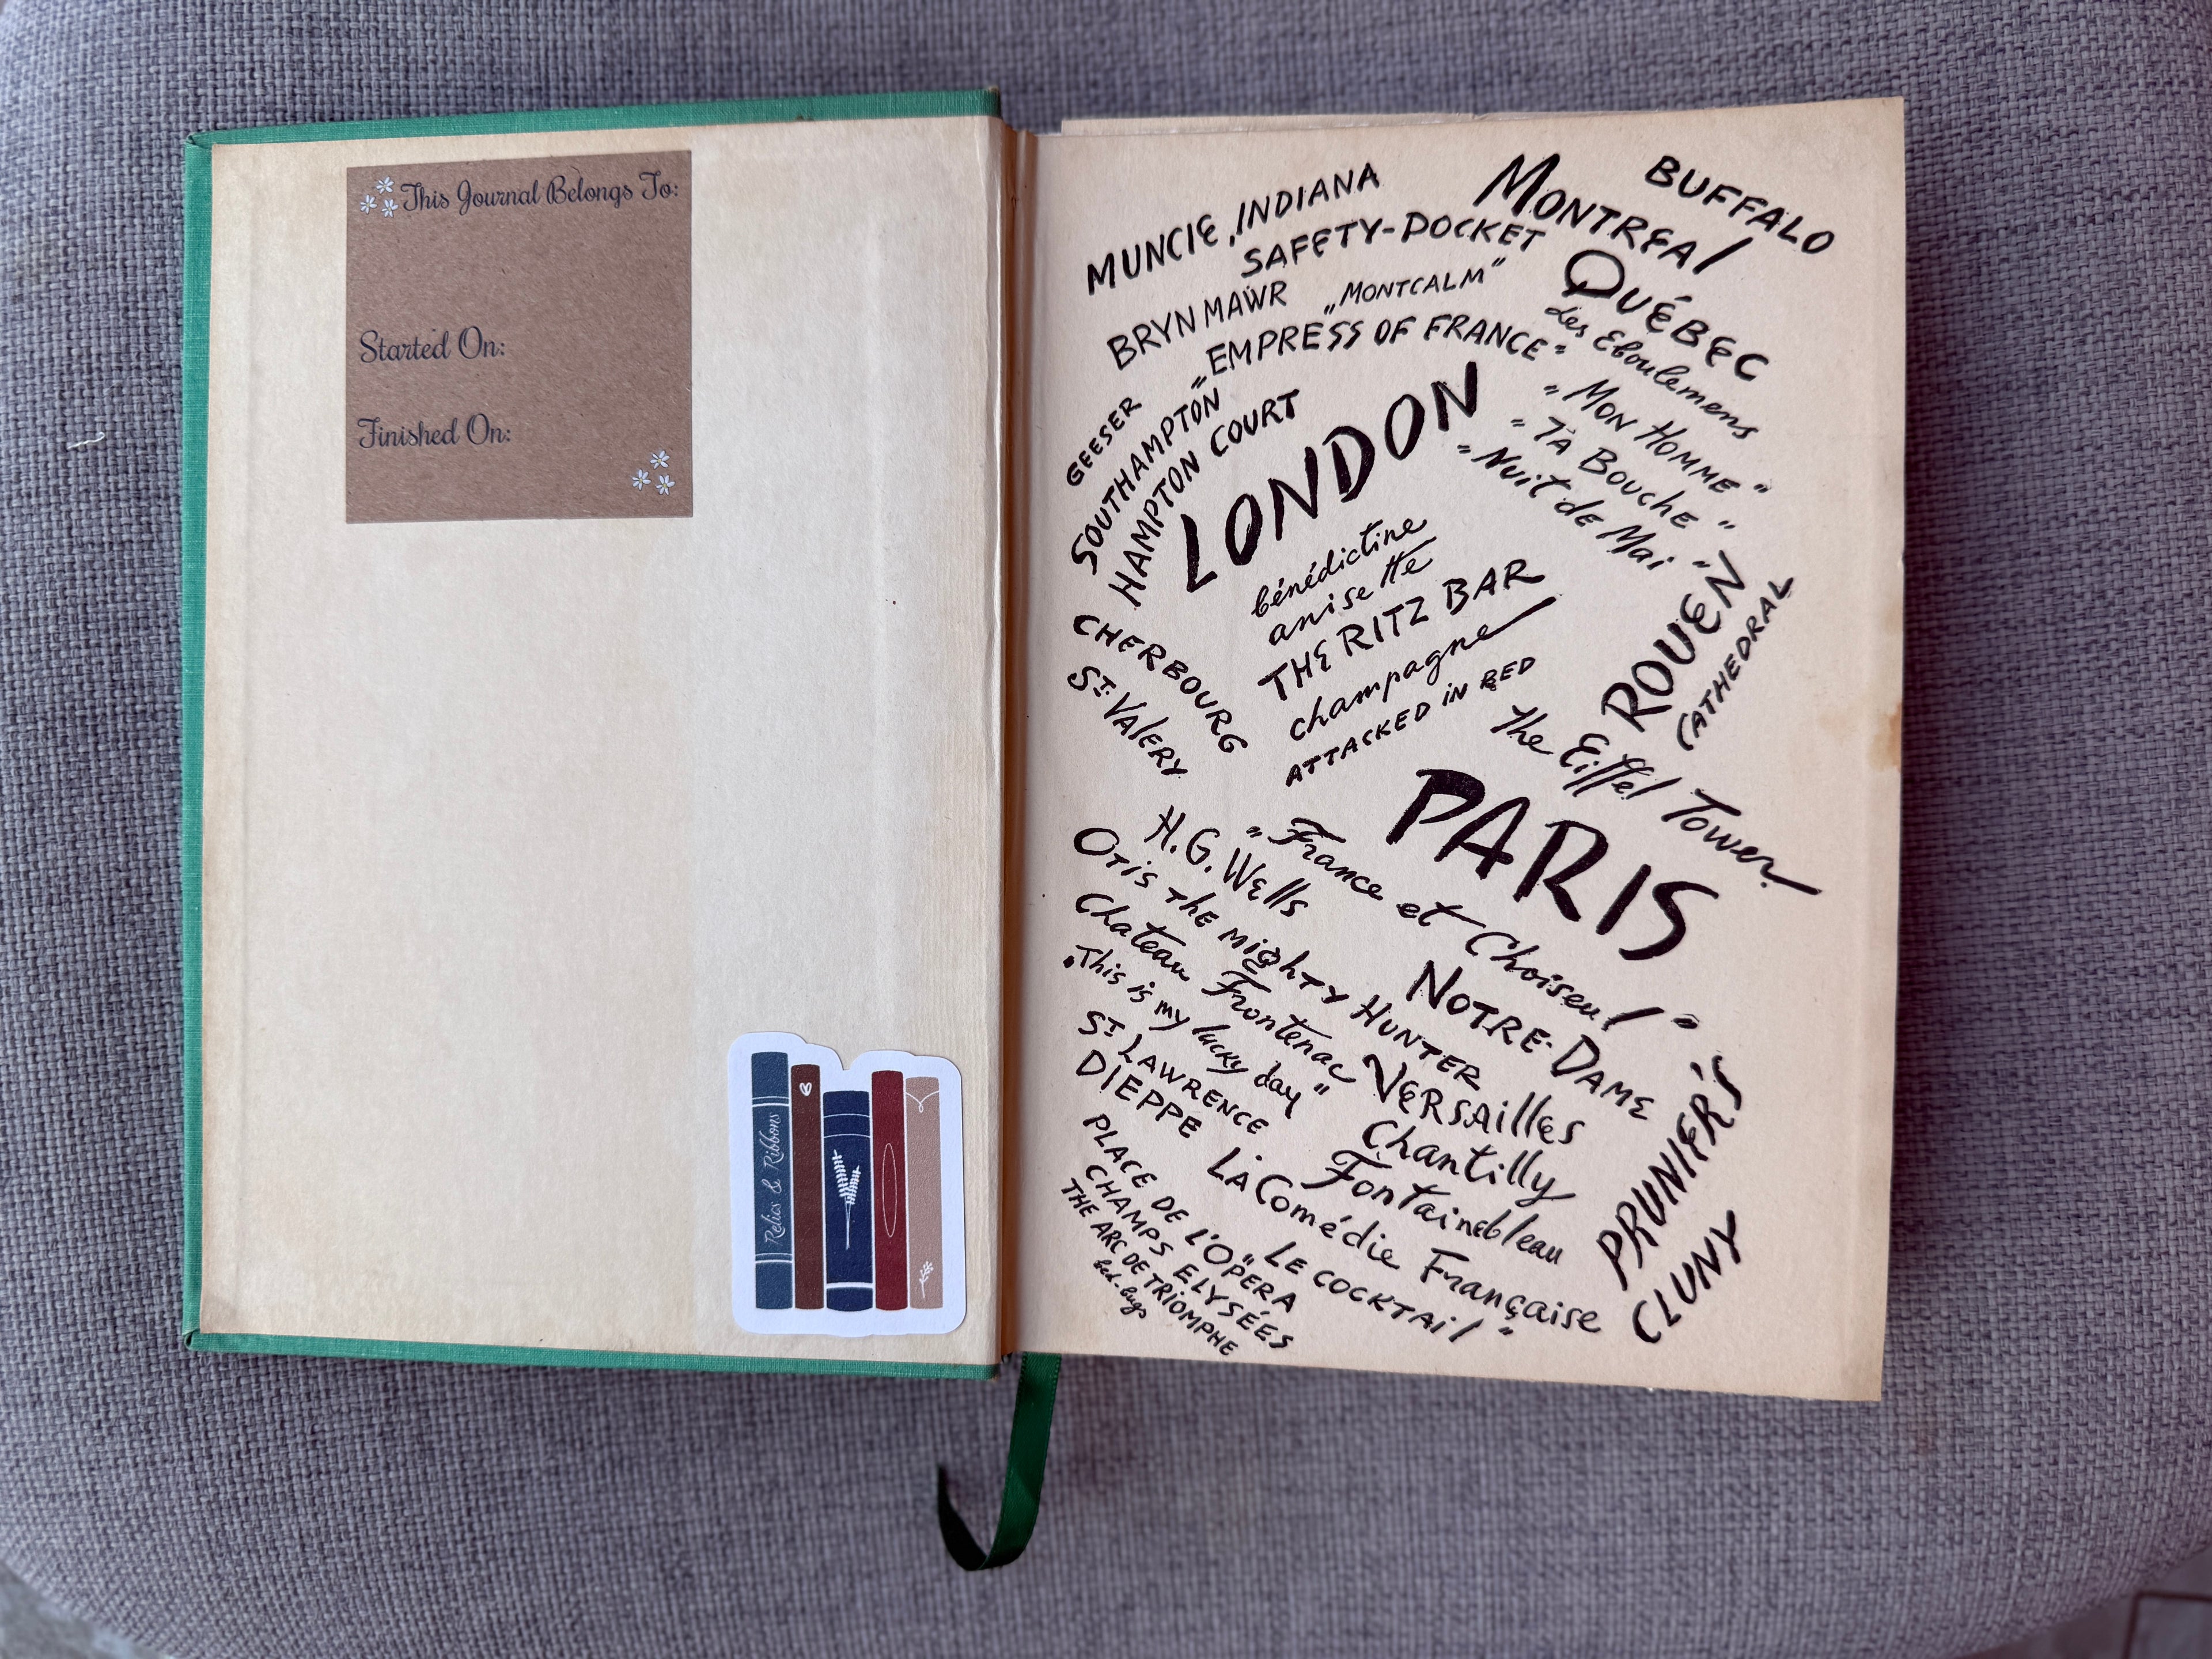 This Journal Belongs To:
Started On:
Finished On:
Relics & Ribbons
MUNCIE, INDIANA
SAFETY-POCKET
MONTREAl
BUFFALO
BRYN MAWR
„MONTCALM"
QUÉBEC
Les Eboulemens
„EMPRESS OF FRANCE"
GEESER
SOUTHAMPTON
HAMPTON COURT
LONDON
„MON HOMME"
„TA BOUCHE"
„Nuit de Mai"
bénédictine
anisette
THE RITZ BAR
champagne
ATTACKED IN BED
CHERBOURG
ST. VAlERY
ROUEN
CATHEDRAL
The Eiffel Tower
PARIS
H.G. WElls
„France et Choiseul"
OTIS THE MIGHTY HUNTER
Chateau Frontenac
„This is my lucky day"
ST LAWRENCE
DIEPPE
NOTRE-DAME
VERSAillES
Chantilly
Fontainebleau
PRUNIER'S
CLUNY
LA Comédie Française
„LE COCKTAIl"
PLACE DE L'OPÉRA
CHAMPS ELYSÉES
THE ARC DE TRIOMPHE
bed-bugs